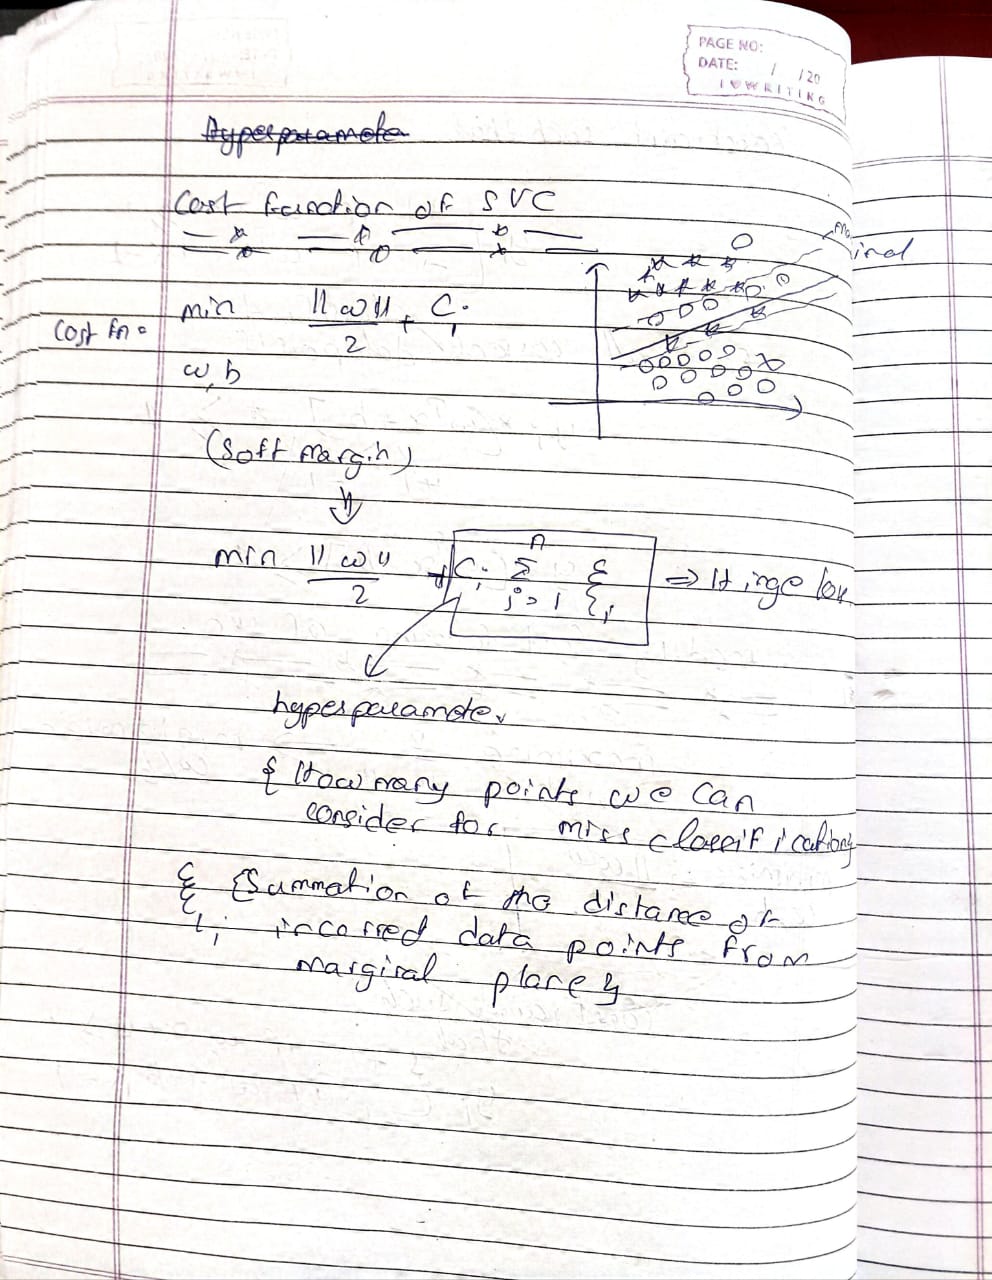 PAGE NO:
DATE: / /20
I ♥ WRITING
Hyperparamete
Cost function of SVC
Cost fn = min ||w|| / 2 + Ci
w, b
(Soft Margin)
⇓
min ||w|| / 2 + Ci Σ i=1 n ξi ⇒ Hinge loss
hyperparameter
{ How many points we can
consider for miss classification}
ξi {Summation of the distance of
incorred data points from
marginal plane}